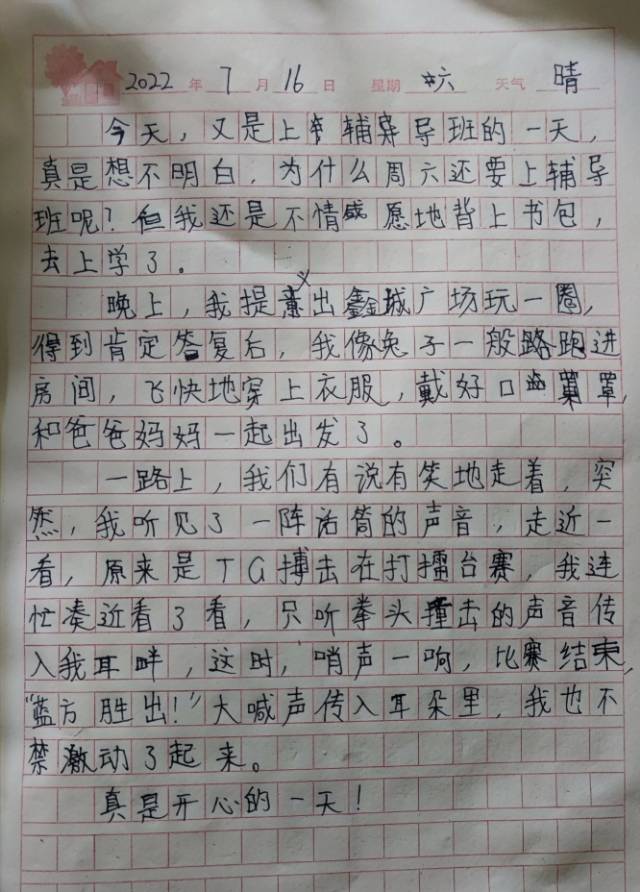 2022年7月16日 星期六 天气 晴
今天，又是上辅导班的一天，
真是想不明白，为什么周六还要上辅导
班呢？但我还是不情愿地背上书包，
去上学了。
晚上，我提出鑫城广场玩一圈，
得到肯定答复后，我像兔子一般路跑进
房间，飞快地穿上衣服，戴好口罩，
和爸爸妈妈一起出发了。
一路上，我们有说有笑地走着，突
然，我听见了一阵话筒的声音，走近一
看，原来是TG搏击在打擂台赛，我连
忙凑近看了看，只听拳头撞击的声音传
入我耳畔，这时，哨声一响，比赛结束，
“蓝方胜出！”大喊声传入耳朵里，我也不
禁激动了起来。
真是开心的一天！